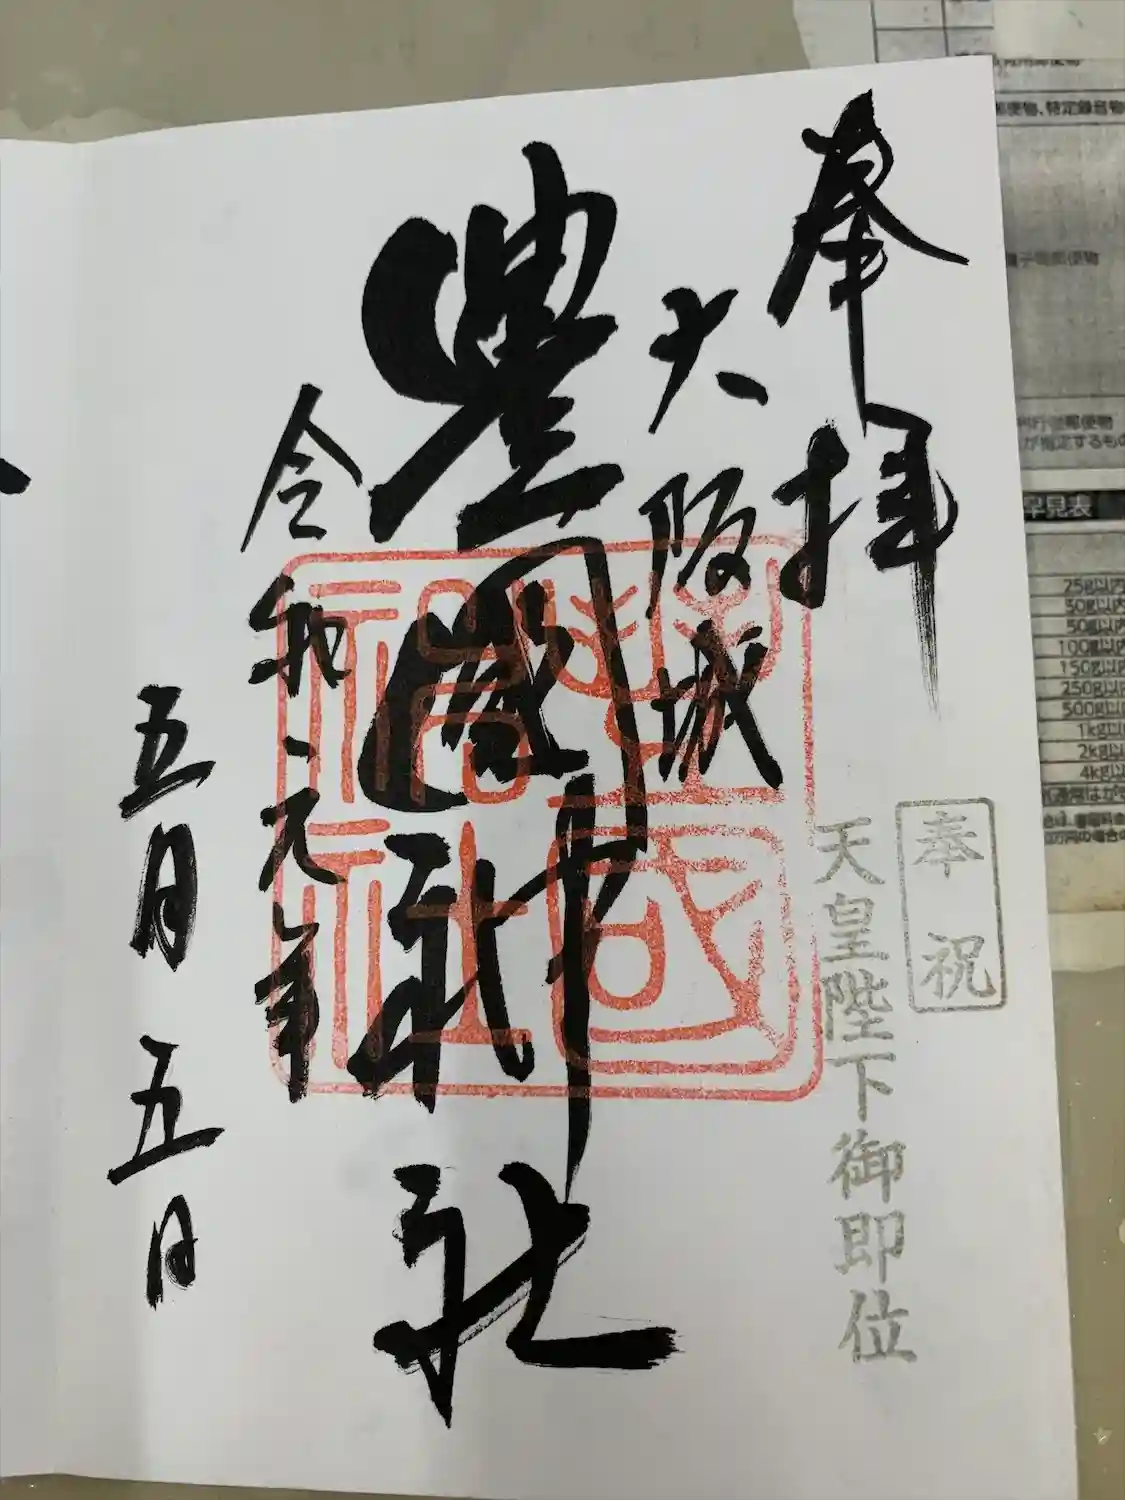 奉拝
奉祝
天皇陛下御即位
大阪城
豐國神社
令和元年
五月五日
早見表
25g以内
50g以内
50g以内
100g以内
150g以内
250g以内
500g以内
1kg以
2kg以
4kg以